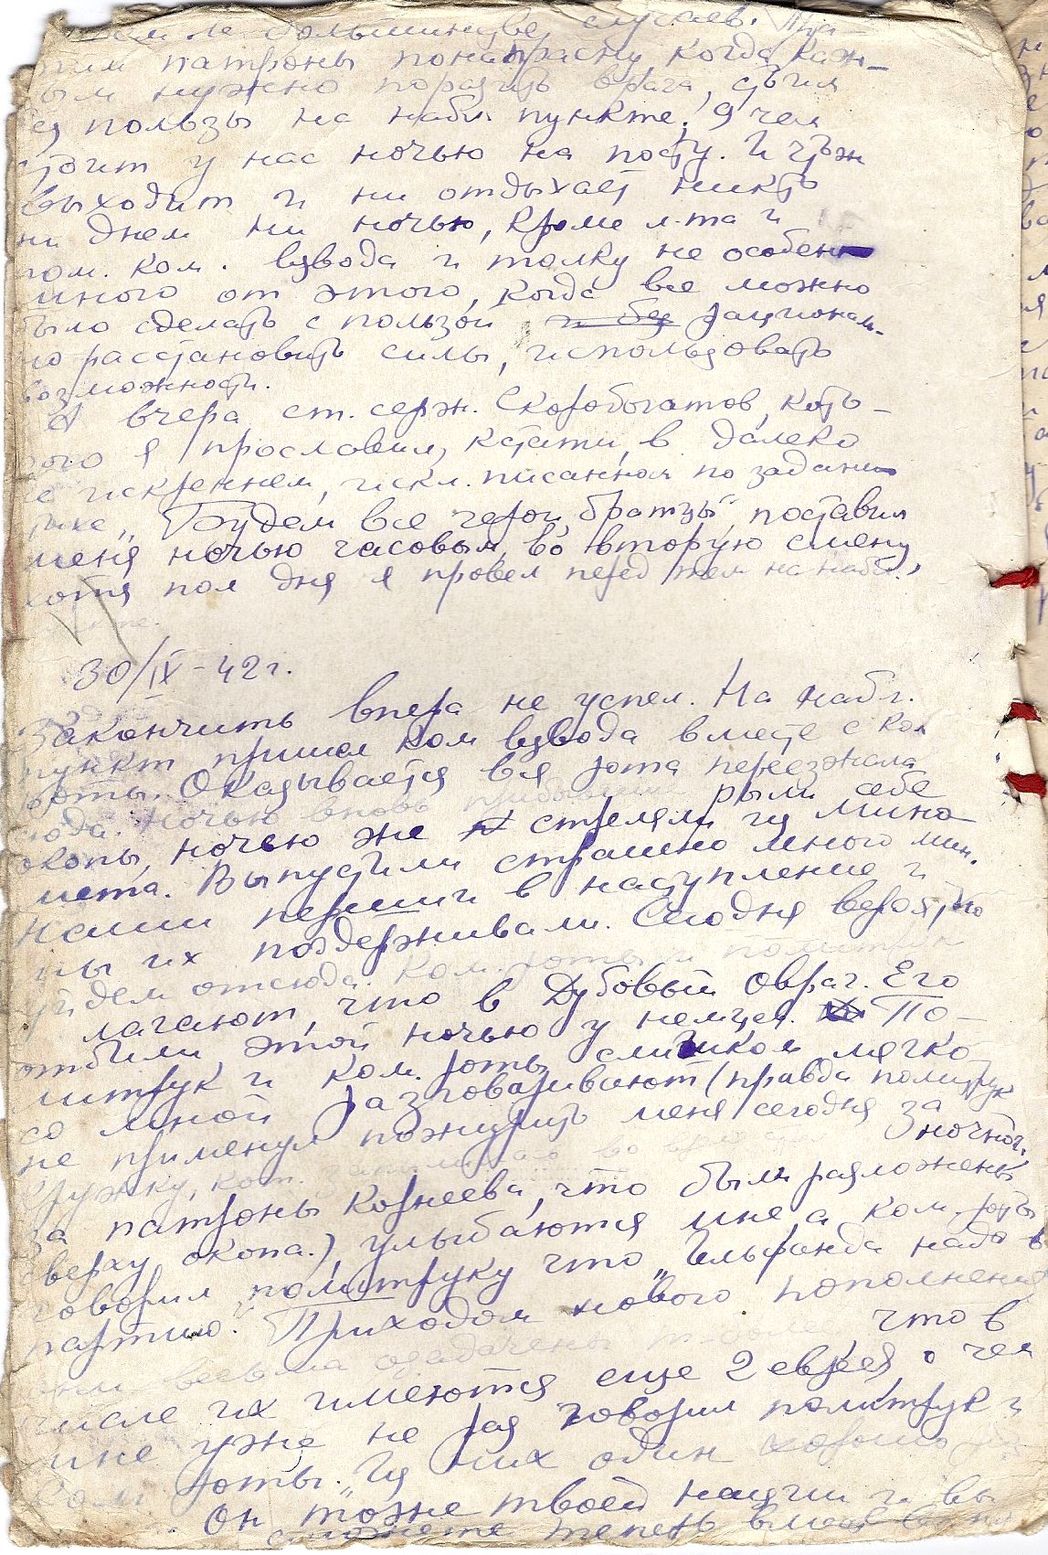 в большинстве случаев. Тра-
тим патроны понапрасну, когда каж-
дым нужно поразить врага, с'ъев
без пользы на набл. пункте. 9 чел
стоит у нас ночью на посту. И так
выходит и ни отдыхает никто
ни днем ни ночью, кроме л-та и
пом. ком. взвода и толку не особен
много от этого, когда все можно
было сделать с пользой и без рационал-
но расстановить силы, использовать
возможности.
А вчера, ст. серж. Скоробогатов, кото-
рого я прославил, кстати, в далеко
не искреннем, искл. писанном по заданию
„Будем все герои, братзы" поставил
меня ночью часовым, во вторую смену
хотя пол дня я провел перед тем на набл.
30/IX-42 г.
Закончить вчера не успел. На набл.
пункт пришел ком взвода вместе с ком
роты. Оказывается вся рота переезжала
сюда. Ночью вновь рыли себе
окопы, ночью же стреляли из мино-
мета. Выпустили страшно много мин.
Наши перешли в наступление и
мы их поддерживали. Сегодня вероятно
уйдем отсюда. Ком. роты и политрук
лагают, что в Дубовый Овраг. Его
отбили этой ночью у немцев. По-
литрук и ком. роты слишком мягко
со мной разговаривают (правда политрук
не применул пожурить меня сегодня за ночног.
кружку, кот.
за патроны Корнеева, что были разложены
сверху окопа.), улыбаются мне, а ком. роты
говорил политруку что „Гельфанда надо в
партию". Приходом нового пополнения
они весьма озадачены что в
числе их имеются еще 2 еврея, о чем
мне уже не раз говорил политрук и
ком роты. „Из них один хорошо
Он тоже твоей нации и вы
сможете теперь вместе